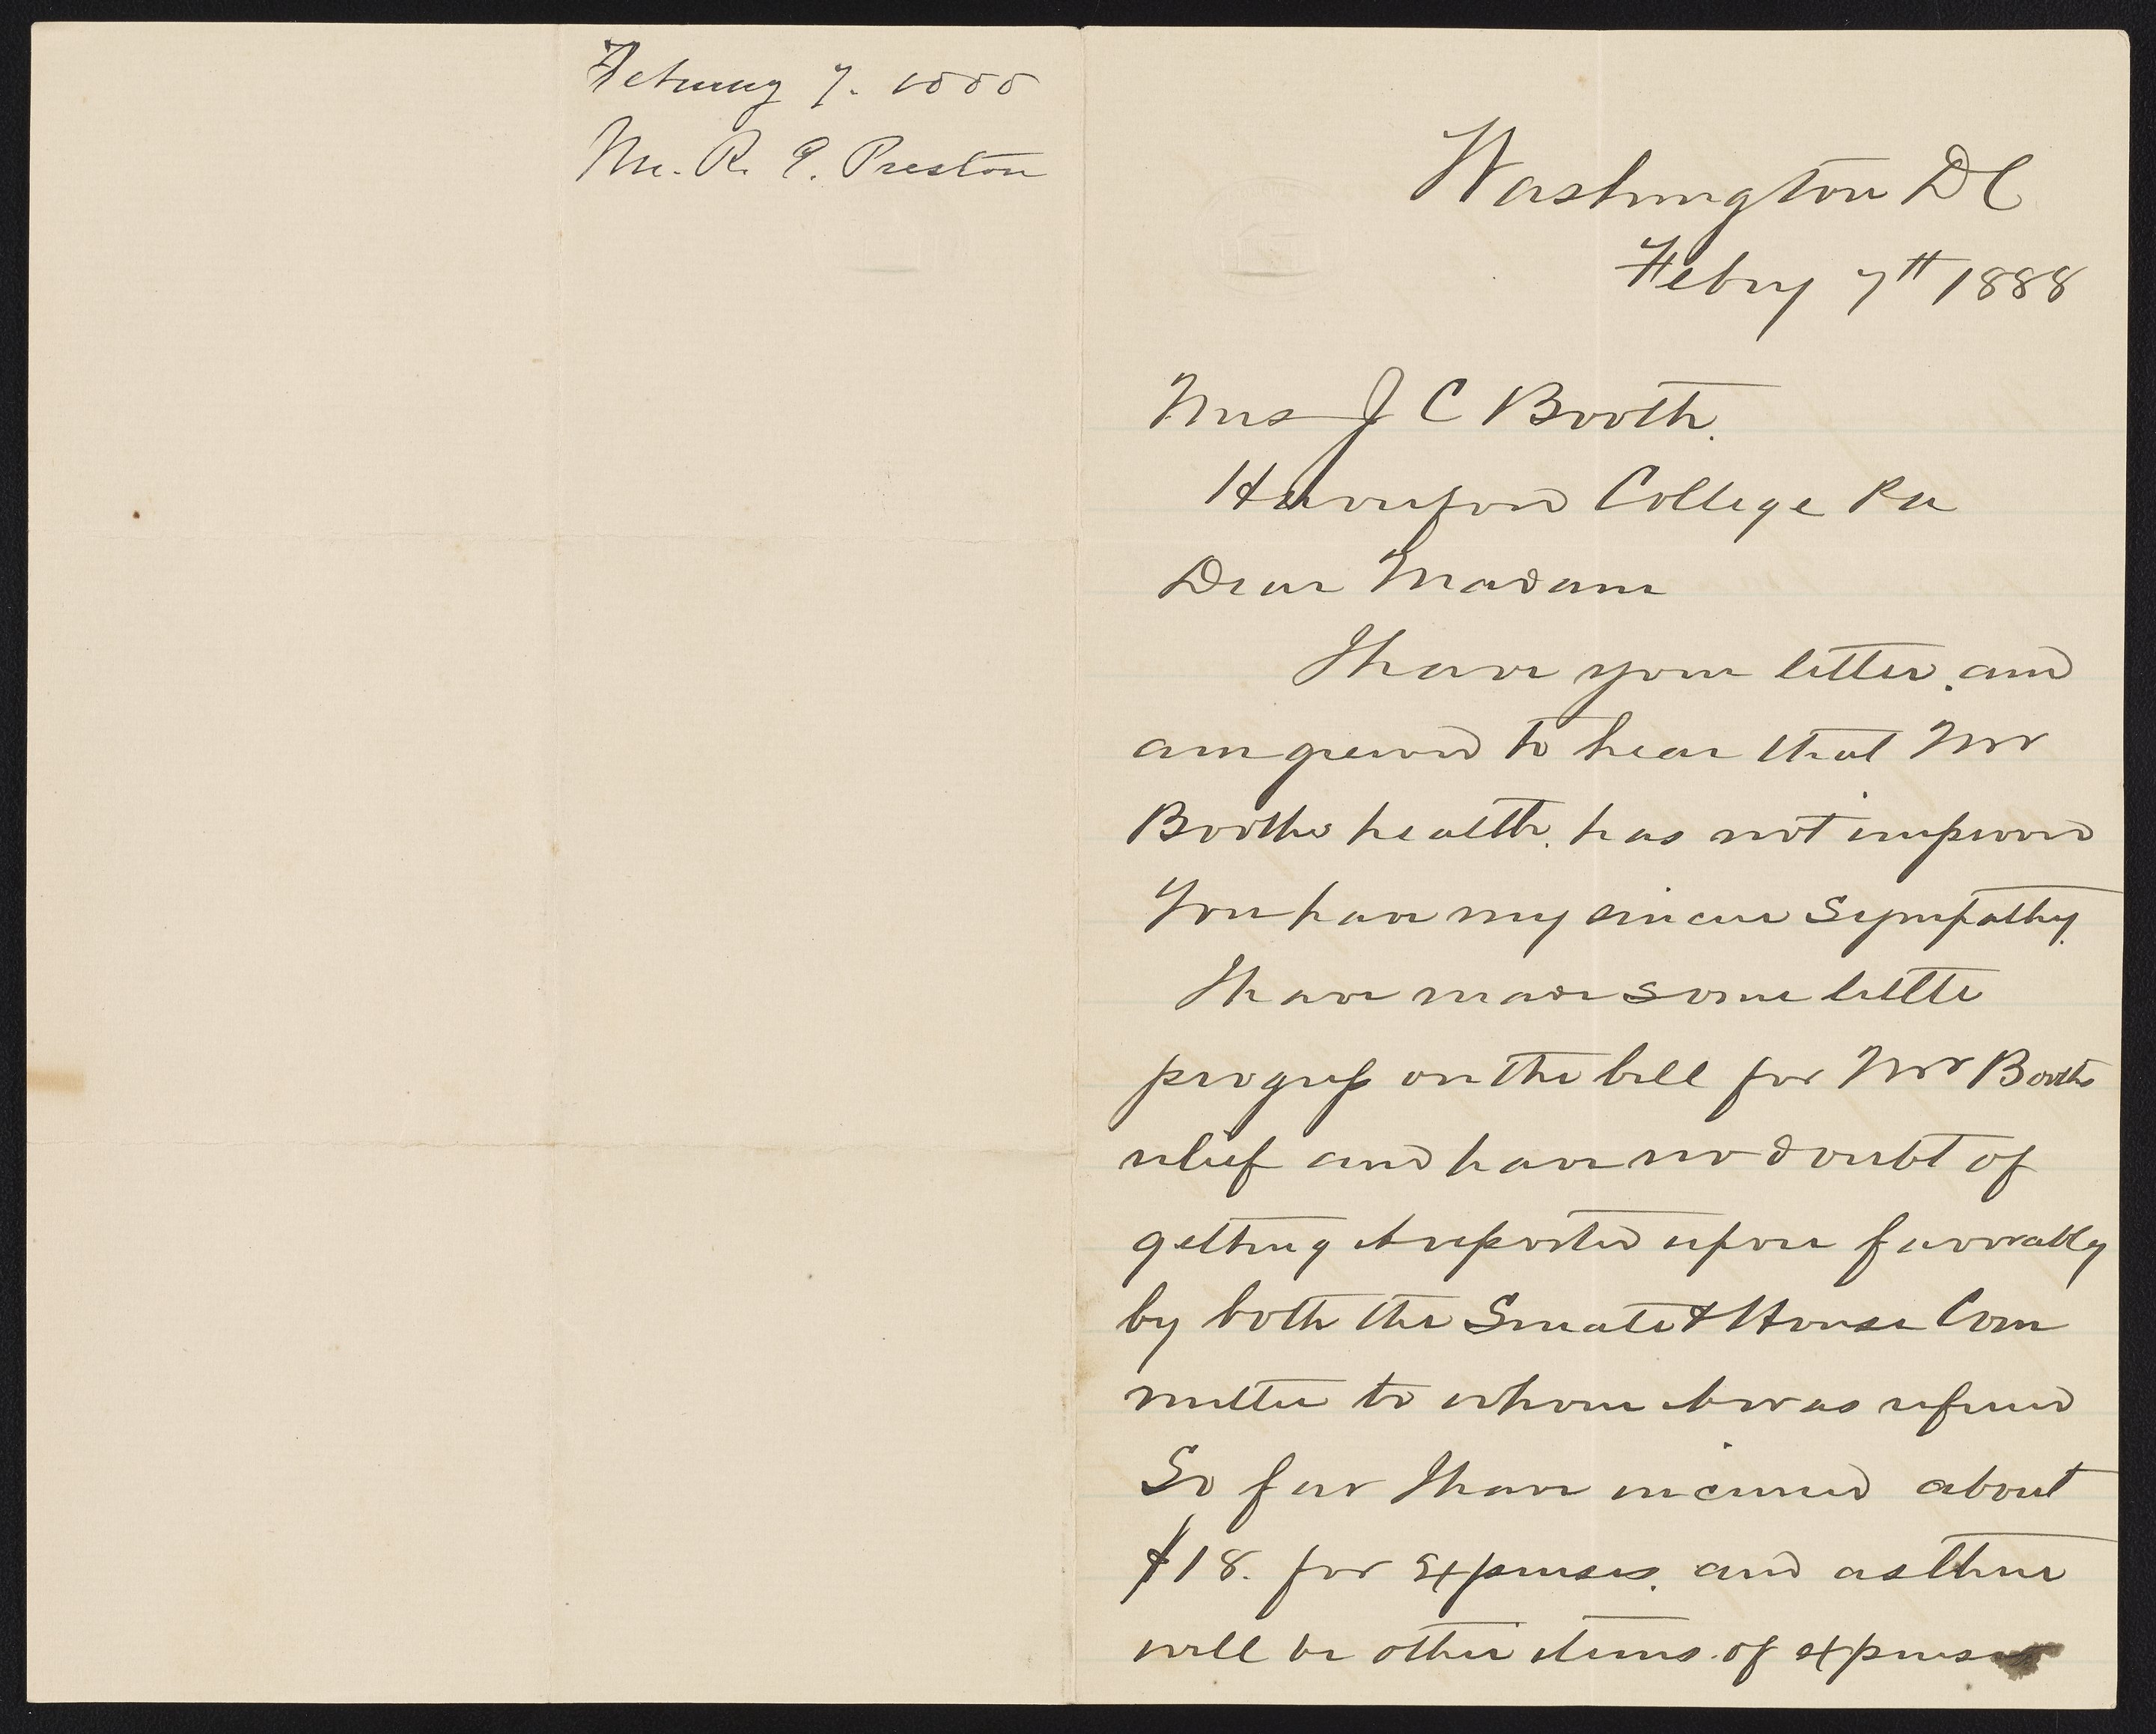 February 7. 1888
Mr. R. E. Preston
Washington DC
Febry 7th 1888
Mrs J C Booth.
Haverford College Pa
Dear Madam
I have your letter. and
am grieved to hear that Mr
Booths health. has not improved
You have my sincere sympathy.
I have made some little
progress on the bill for Mr Booths
relief and have no doubt of
getting it reported upon favorably
by both the Senate & House Com
mittee to whom it was referred
So far I have incurred about
$18. for expenses. and as there
will be other items of expenses